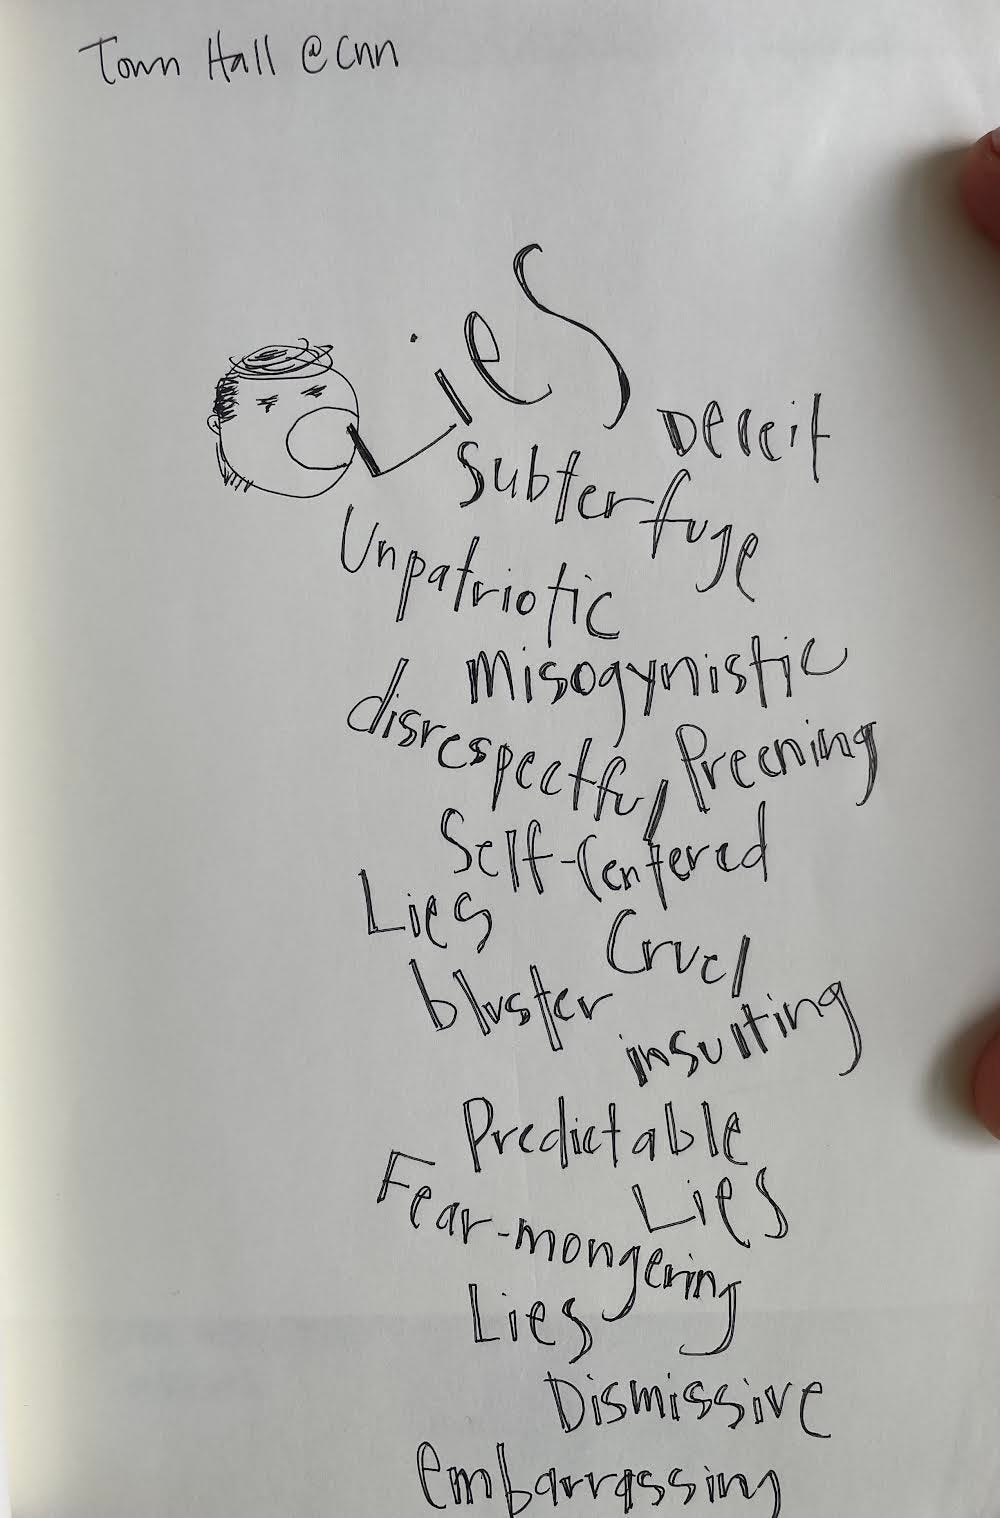 Town Hall @ cnn
Lies
Deceit
Subterfuge
Unpatriotic
Misogynistic
disrespectful
Preening
Self-Centered
Lies
Cruel
bluster
insulting
Predictable
Fear-mongering
Lies
Lies
Dismissive
embarrassing